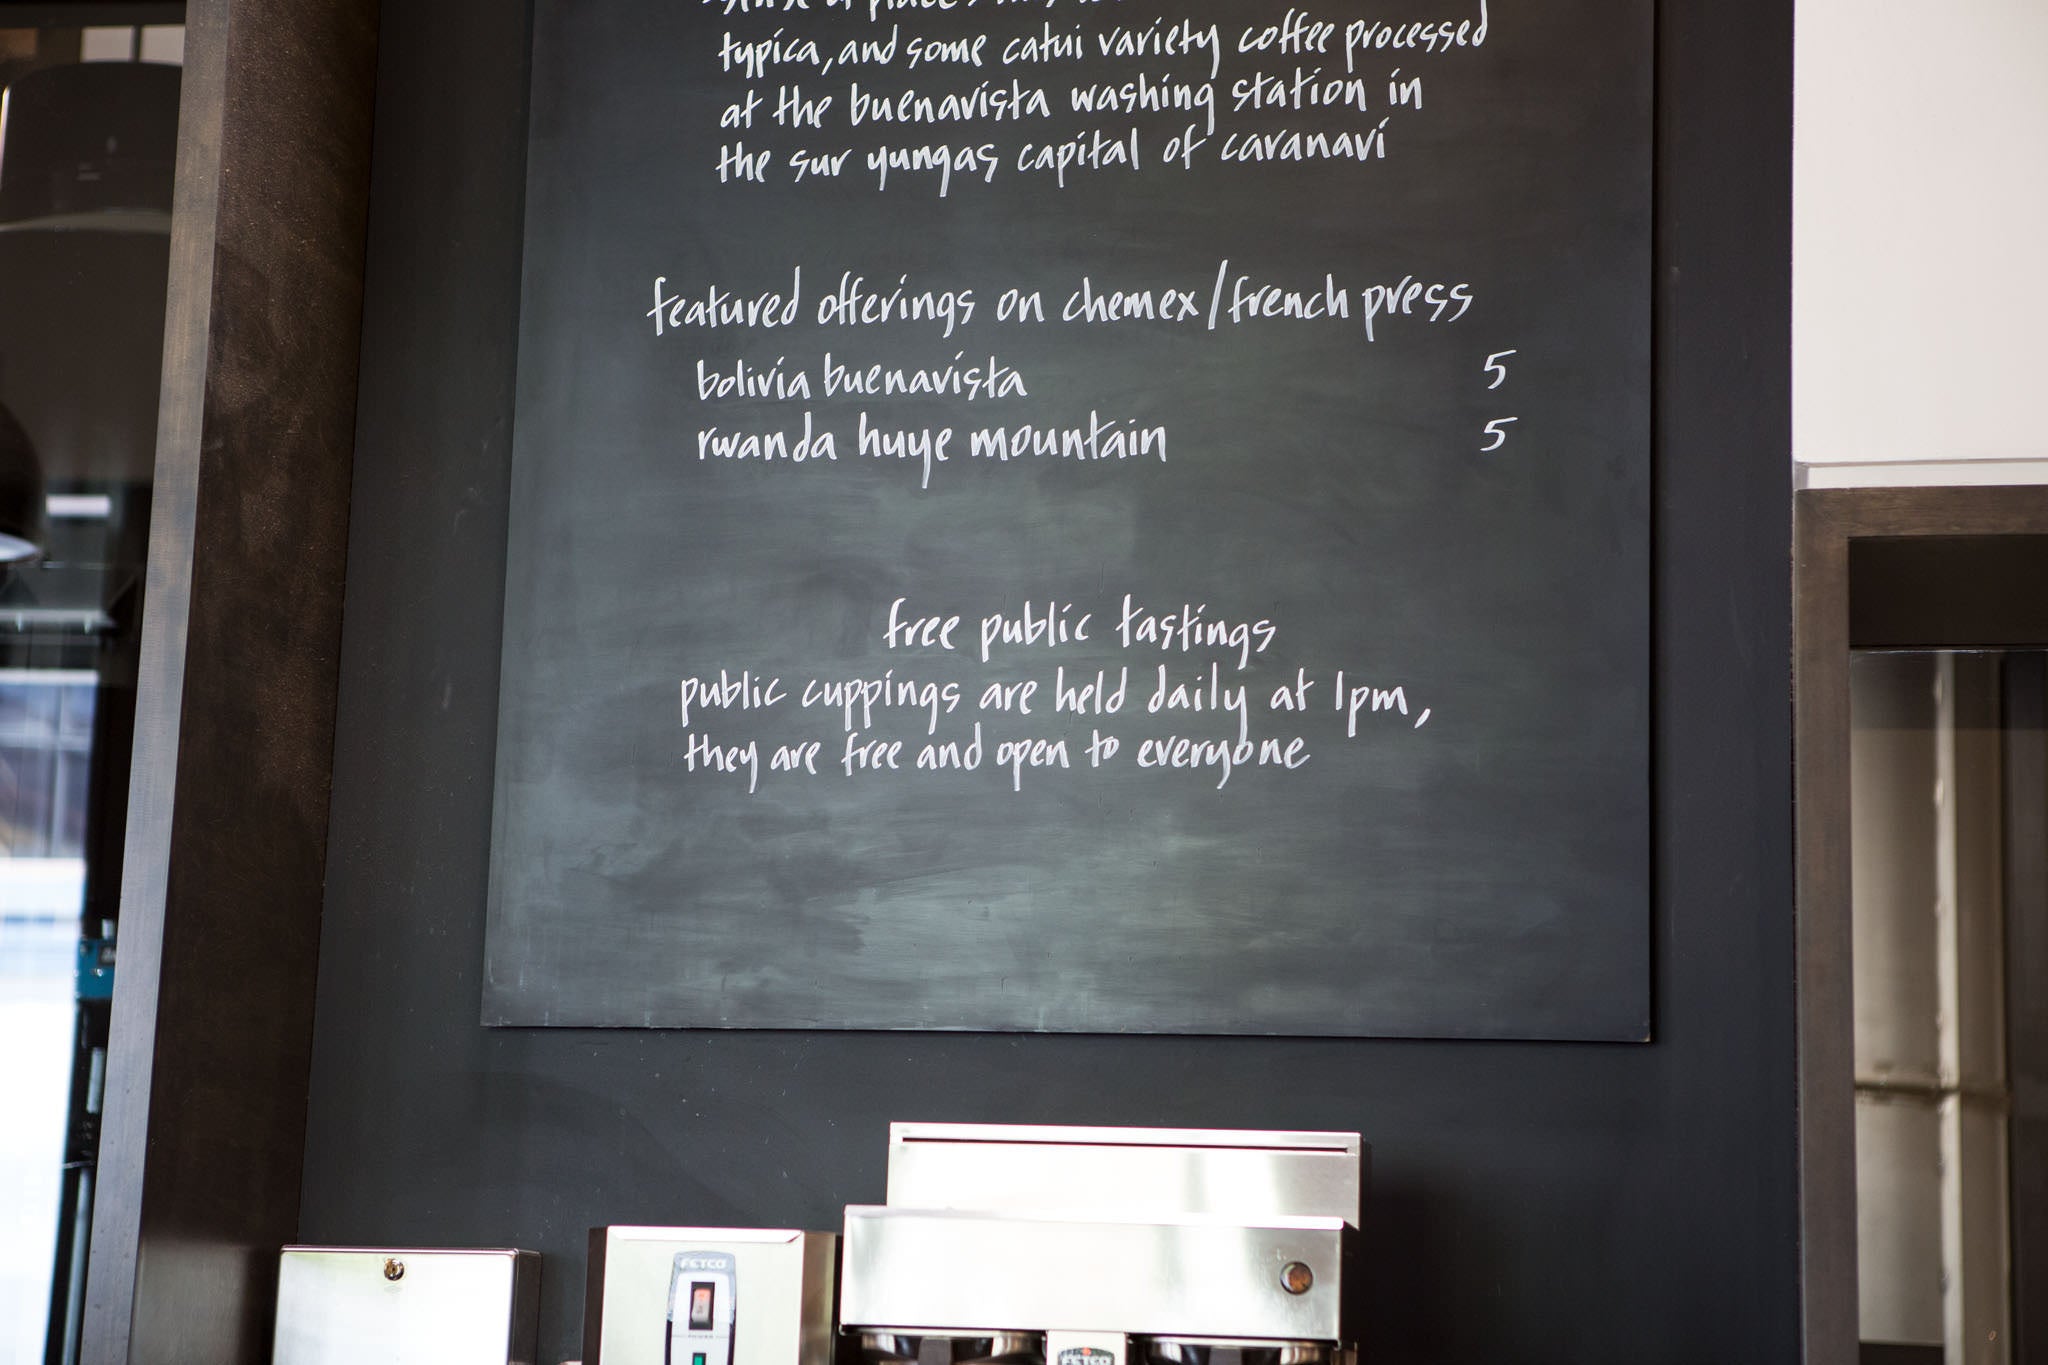 typica, and some catui variety coffee processed
at the buenavista washing station in
the sur yungas capital of caranavi
featured offerings on chemex/french press
bolivia buenavista 5
rwanda huye mountain 5
free public tastings
public cuppings are held daily at 1pm,
they are free and open to everyone
FETCO
POWER
FETCO